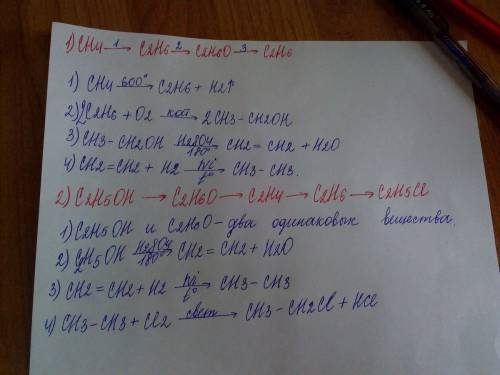 1) CH4 —1→ C2H6 —2→ C2H6O —3→ C2H6
1) CH4 —600°→ C2H6 + H2↑
2) 2C2H6 + O2 —кат→ 2CH3-CH2OH
3) CH3-CH2OH —H2SO4 180°→ CH2=CH2 + H2O
4) CH2=CH2 + H2 —Ni t°→ CH3-CH3.
2) C2H5OH → C2H6O → C2H4 → C2H6 → C2H5Cl
1) C2H5OH и C2H6O - два одинаковых вещества.
2) C2H5OH —H2SO4 180°→ CH2=CH2 + H2O
3) CH2=CH2 + H2 —Ni t°→ CH3-CH3
4) CH3-CH3 + Cl2 —свет→ CH3-CH2Cl + HCl